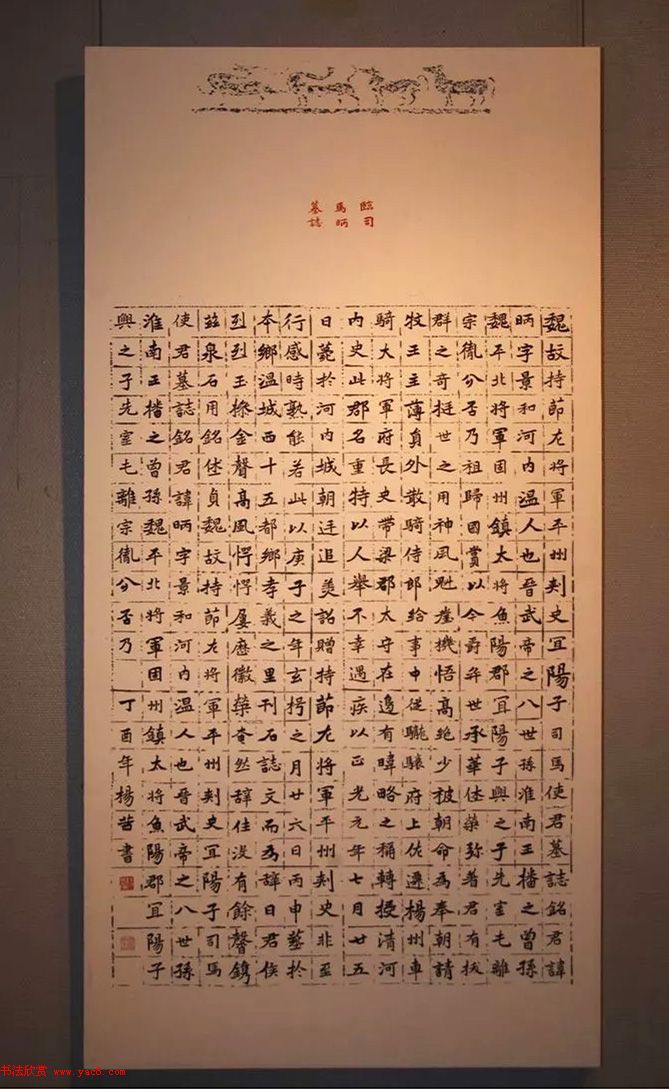 臨司
馬昞
墓誌
魏故持節左將軍平州刾史冝陽子司馬使君墓誌銘君諱
昞字景和河内温人也晉武帝之八世孫淮南王播之曾孫
魏平北將軍固州鎮太將魚陽郡冝陽子興之子先室毛離
宗胤分否乃祖歸國賞以今爵世承華住榮弥著君有拔
群之奇挺世之用神風魁崖機悟高絶少被朝命為奉朝請
牧王主薄員外散騎侍郎給事中從驤府上佐遷楊州車
騎大將軍府長史帶梁郡太守在邊有暐略之稱轉授清河
内史此郡名重特以人舉不幸遇疾以正光元年七月廿五
日薨於河内城朝廷追美詔贈持節左將軍平州刾史非至
行感時熟能若此以庚子之年玄枵之月廿六日丙申葬於
本鄉温城西十五都鄉孝義之里刊石誌文而為辞曰君侯
烈烈玉操金聲高風愕愕屢應徽榮奄然辞住没有餘馨鐫
兹泉石用銘休貞魏故持節左將軍平州刾史冝陽子司馬
使君墓誌銘君諱昞字景和河内温人也晉武帝之八世孫
淮南王播之曾孫魏平北將軍固州鎮太將魚陽郡冝陽子
興之子先室毛離宗胤分否乃 丁酉年楊書
书法欣赏 www.yac8.com